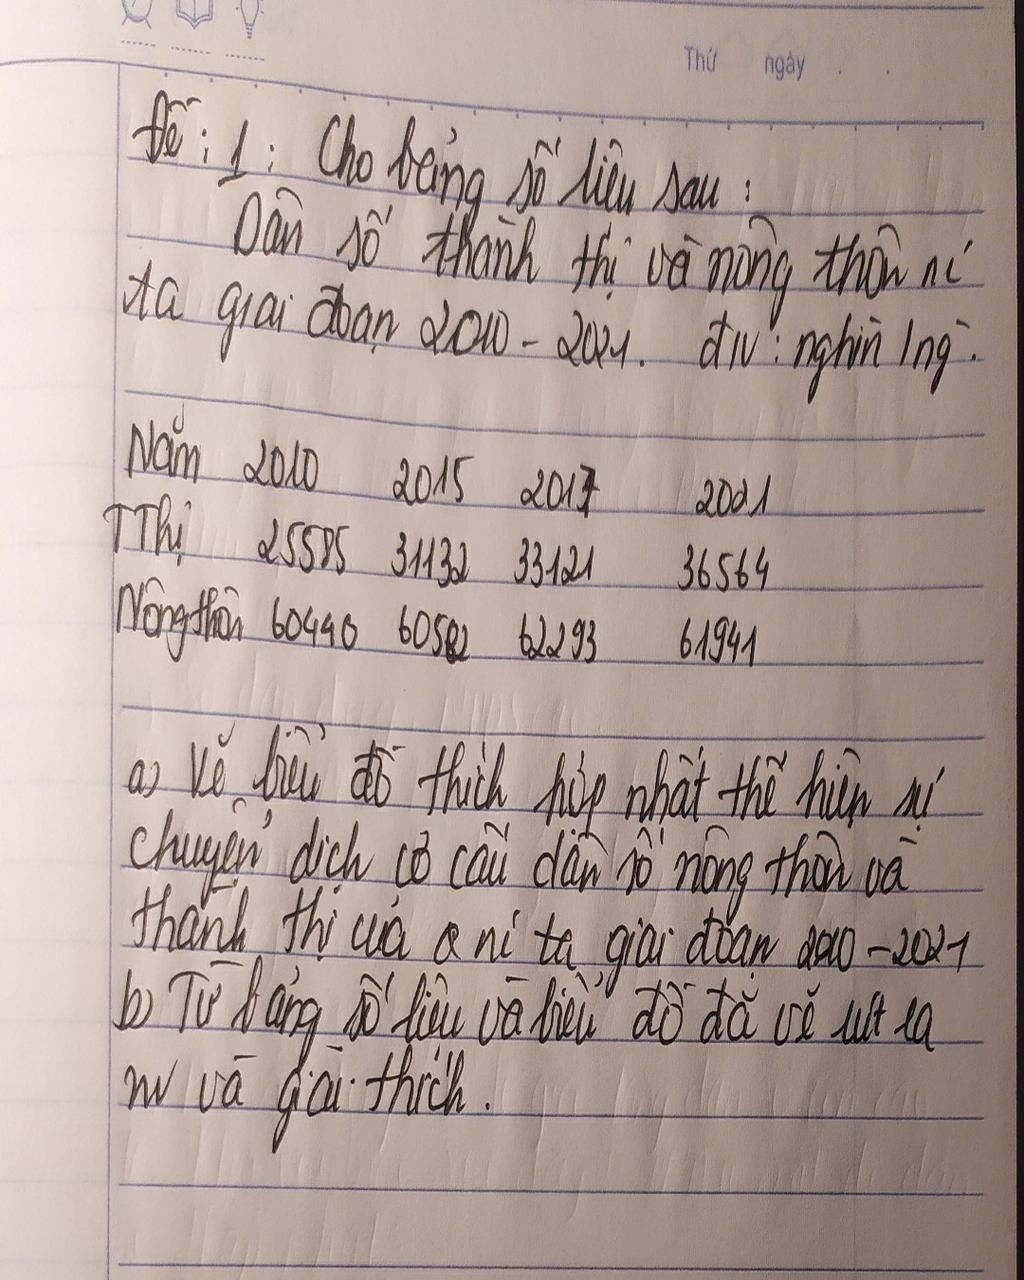 Thứ ngày
Đề : 1 : Cho bảng số liệu sau :
Dân số thành thị và nông thôn nc
ta giai đoạn 2010 - 2021. đv : nghìn ng .
Năm 2010 2015 2017 2021
TThị 25585 31132 33121 36564
Nông thôn 60440 60582 62293 61941
a) Vẽ biểu đồ thích hợp nhất thể hiện sự
chuyển dịch cơ cấu dân số nông thôn và
thành thị của nc ta giai đoạn 2010 - 2021
b) Từ bảng số liệu và biểu đồ đã vẽ rút ra
nx và giải thích .